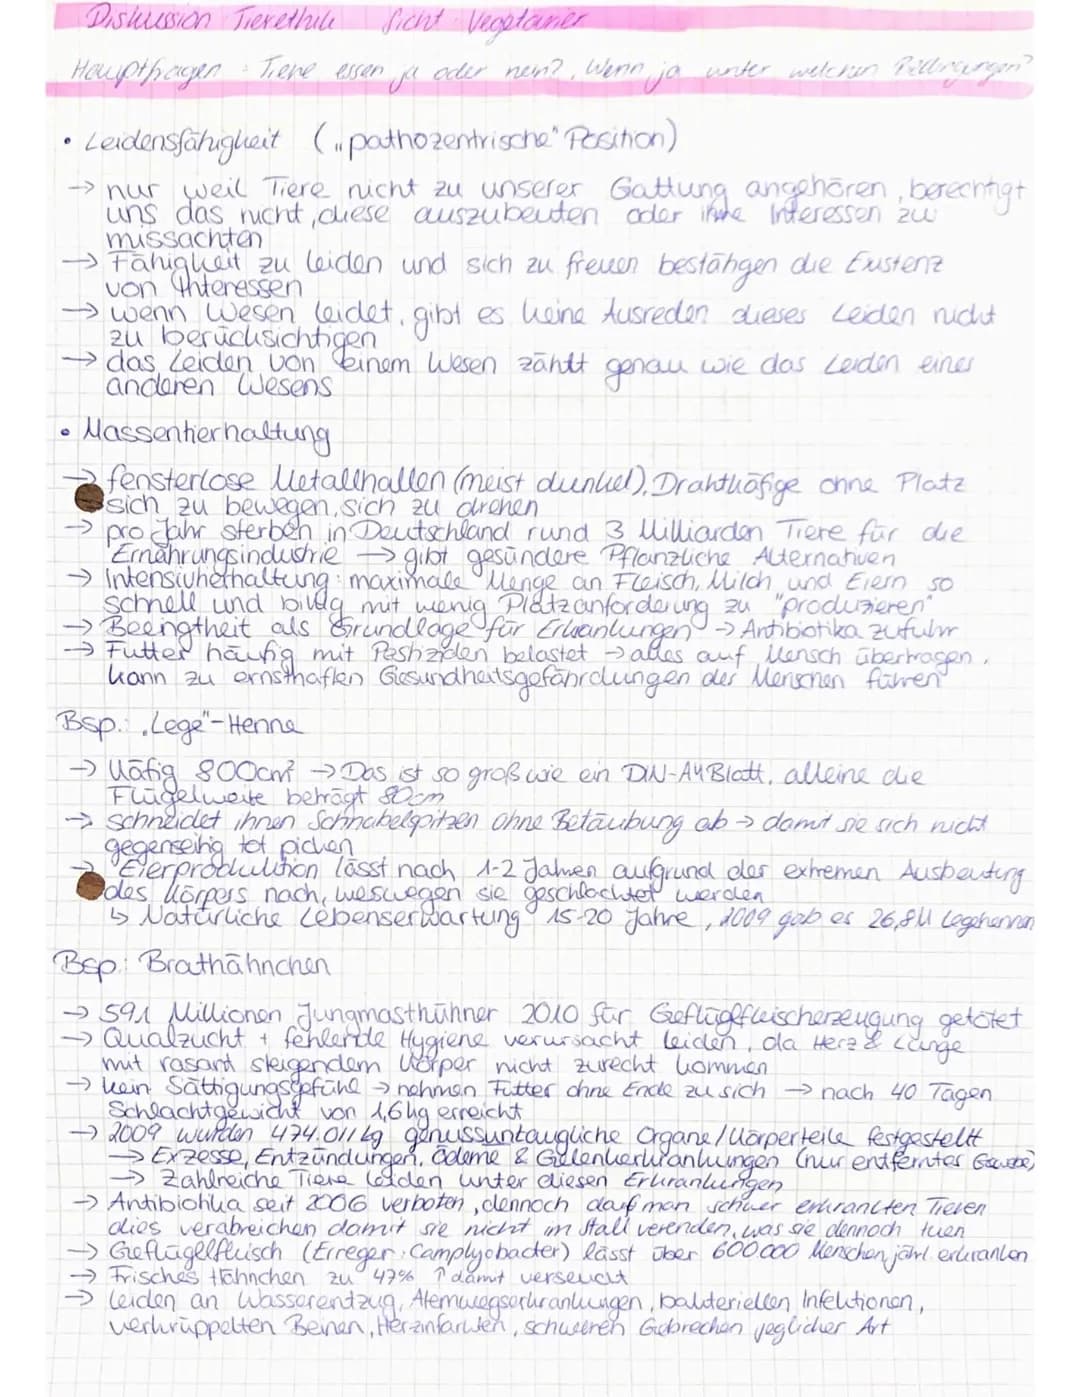 Diskussion Tierethik Sicht Vegetarier
Hauptfragen: Tiere essen ja oder nein?, Wenn ja unter welchen Bedingungen?
• Leidensfähigkeit („pathozentrische" Position)
→ nur weil Tiere nicht zu unserer Gattung angehören, berechtigt
uns das nicht, diese auszubeuten oder ihre Interessen zu
missachten
→ Fähigkeit zu leiden und sich zu freuen bestätigen die Existenz
von Interessen
→ wenn Wesen leidet, gibt es keine Ausreden dieses Leiden nicht
zu berücksichtigen
→ das Leiden von einem Wesen zählt genau wie das Leiden eines
anderen Wesens
• Massentierhaltung
→ fensterlose Metallhallen (meist dunkel), Drahtkäfige ohne Platz
sich zu bewegen, sich zu drehen
→ pro Jahr sterben in Deutschland rund 3 Milliarden Tiere für die
Ernährungsindustrie → gibt gesündere Pflanzliche Alternativen
→ Intensivhethaltung: maximale Menge an Fleisch, Milch und Eiern so
schnell und billig mit wenig Platzanforderung zu "produzieren"
→ Beengtheit als Grundlage für Erkrankungen → Antibiotika zufuhr
→ Futter häufig mit Pestiziden belastet → alles auf Mensch übertragen,
kann zu ernsthaften Gesundheitsgefährdungen der Menschen führen
Bsp.: „Lege"-Henne
→ Käfig 800cm² → Das ist so groß wie ein DIN-A4 Blatt, alleine die
Flügelweite beträgt 80cm
→ schneidet ihnen Schnabelspitzen ohne Betäubung ab → damit sie sich nicht
gegenseitig tot picken
→ Eierproduktion lässt nach 1-2 Jahren aufgrund der extremen Ausbeutung
des Körpers nach, weswegen sie geschlachtet werden
↳ Natürliche Lebenserwartung 15-20 Jahre, 2009 gab es 26,8M Legehennen
Bsp: Brathähnchen
→ 591 Millionen Jungmasthühner 2010 für Geflügelfleischerzeugung getötet
→ Qualzucht + fehlende Hygiene verursacht leiden, da Herz & Lunge
mit rasant steigendem Körper nicht zurecht kommen
→ kein Sättigungsgefühl → nehmen Futter ohne Ende zu sich → nach 40 Tagen
Schlachtgewicht von 1,6kg erreicht
→ 2009 wurden 474.011kg genussuntaugliche Organe/Körperteile festgestellt
→ Exzesse, Entzündungen, Ödeme & Gelenkerkrankungen (nur entferntes Gewebe)
→ Zahlreiche Tiere leiden unter diesen Erkrankungen
→ Antibiotika seit 2006 verboten, dennoch darf man schwer erkrankten Tieren
dies verabreichen damit sie nicht im Stall verenden, was sie dennoch tuen
→ Geflügelfleisch (Erreger: Camplyobacter) lässt über 600000 Menschen jährl. erkranken
→ Frisches Hähnchen zu 47% ↑ damit verseucht
→ leiden an Wasserentzug, Atemwegserkrankungen, bakteriellen Infektionen,
verkrüppelten Beinen, Herzinfarkten, schweren Gebrechen jeglicher Art